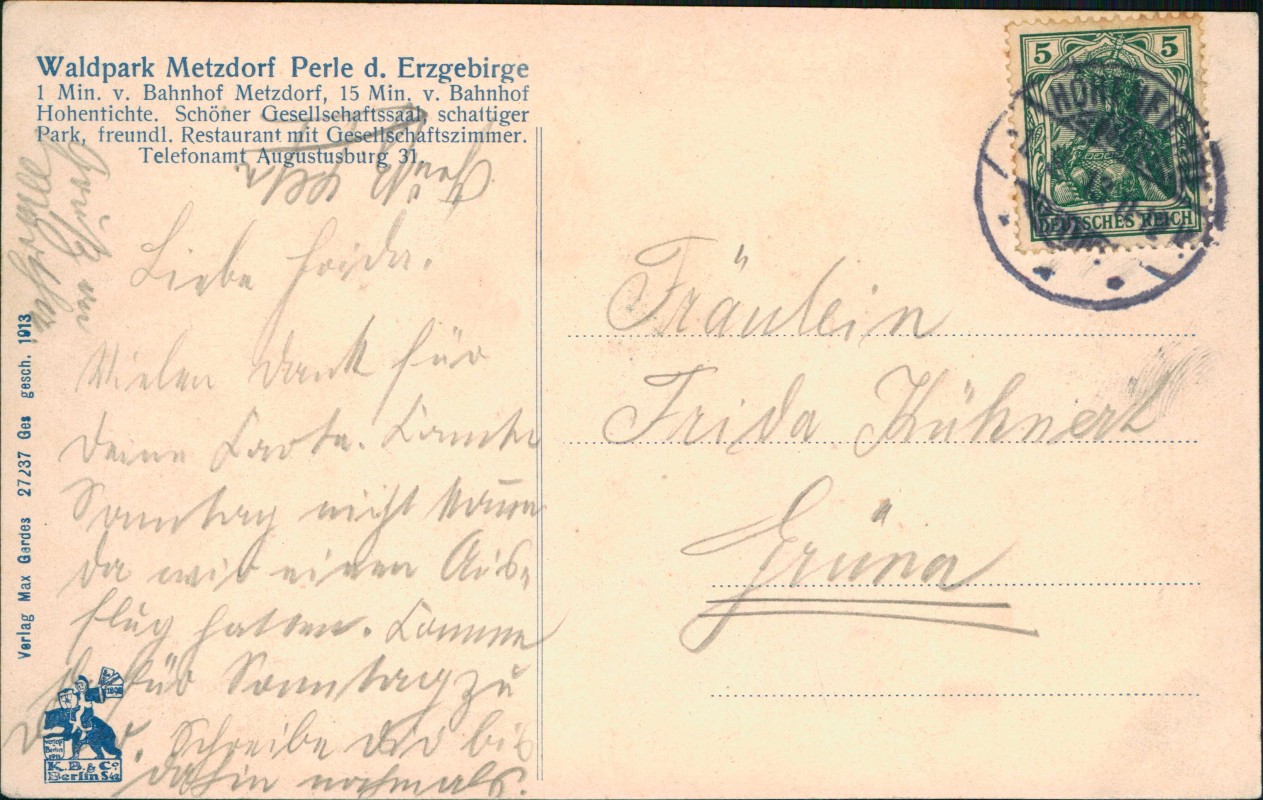 Waldpark Metzdorf Perle d. Erzgebirge
1 Min. v. Bahnhof Metzdorf, 15 Min. v. Bahnhof
Hohenfichte. Schöner Gesellschaftssaal, schattiger
Park, freundl. Restaurant mit Gesellschaftszimmer.
Telefonamt Augustusburg 31.
Liebe Frida.
Vielen Dank für
Deine Karte. Konnte
Sonntag nicht kommen
da wir einen Aus-
flug hatten. Komme
für Sonntag zu
Schreibe dir bis
dahin nochmals.
5 5
DEUTSCHES REICH
Fräulein
Frida Kühnert
Grüna
Verlag Max Gerdes 27237 Ges gesch. 1913
K.B. & Co
Berlin S 42